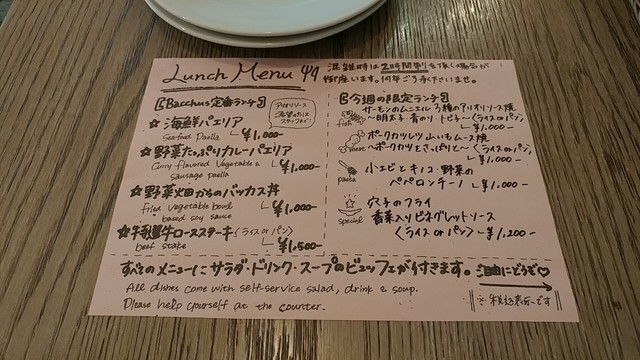 Lunch Menu
混雑時は2時間制を頂く場合が
御座います。何卒ご了承くださいませ。
【Bacchus定番ランチ】
アリオリソース
ご希望の方は
スタッフまで!
☆海鮮パエリア
Seafood Paella ¥1,000-
☆野菜たっぷりカレーパエリア
Curry flavored vegetable & sausage paella ¥1,000-
☆野菜畑からのバッカス丼
fried vegetable bowl based soy sauce ¥1,000-
☆特選牛ロースステーキ(ライスorパン)
beef stake ¥1,500-
【今週の限定ランチ】
fish サーモンのムニエル 3種のアリオリソース焼
~明太子 青のり トビコ~(ライスorパン)
¥1,000-
meat ポークカツレツ 山いもムース焼
~ポークカツをさっぱりと~(ライスorパン)
¥1,000-
pasta 小エビとキノコ・野菜の
ペペロンチーノ ¥1,000-
special 穴子のフライ
香菜入りビネグレットソース
(ライスorパン)~¥1,200-
すべてのメニューにサラダ・ドリンク・スープのビュッフェが付きます。ご自由にどうぞ♡
All dishes come with self-service salad, drink & soup.
Please help yourself at the counter.
※税込表示です